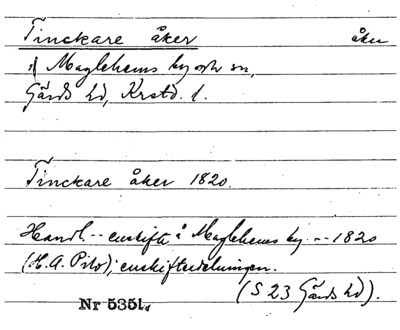 Tinckare åker åker
i Maglehems by och sn,
Gärds hd, Krstd. l.
Tinckare åker 1820.
Handl. -- enskifte å Maglehems by -- 1820
(H. A. Pilo); enskiftesdelningen.
(S 23 Gärds hd).
Nr 5351.